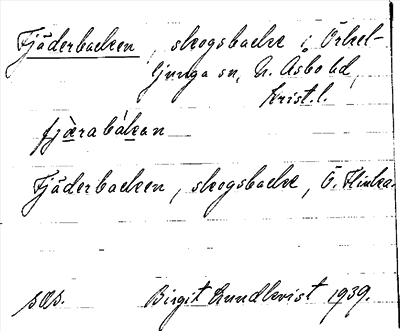 Fjäderbacken, skogsbacke i Örkel-
ljunga sn, N. Åsbo hd,
Krist. l.
fjæ̀rabákan
Fjäderbacken, skogsbacke, Ö. Flinka.
sås. Birgit Lundkvist 1939.